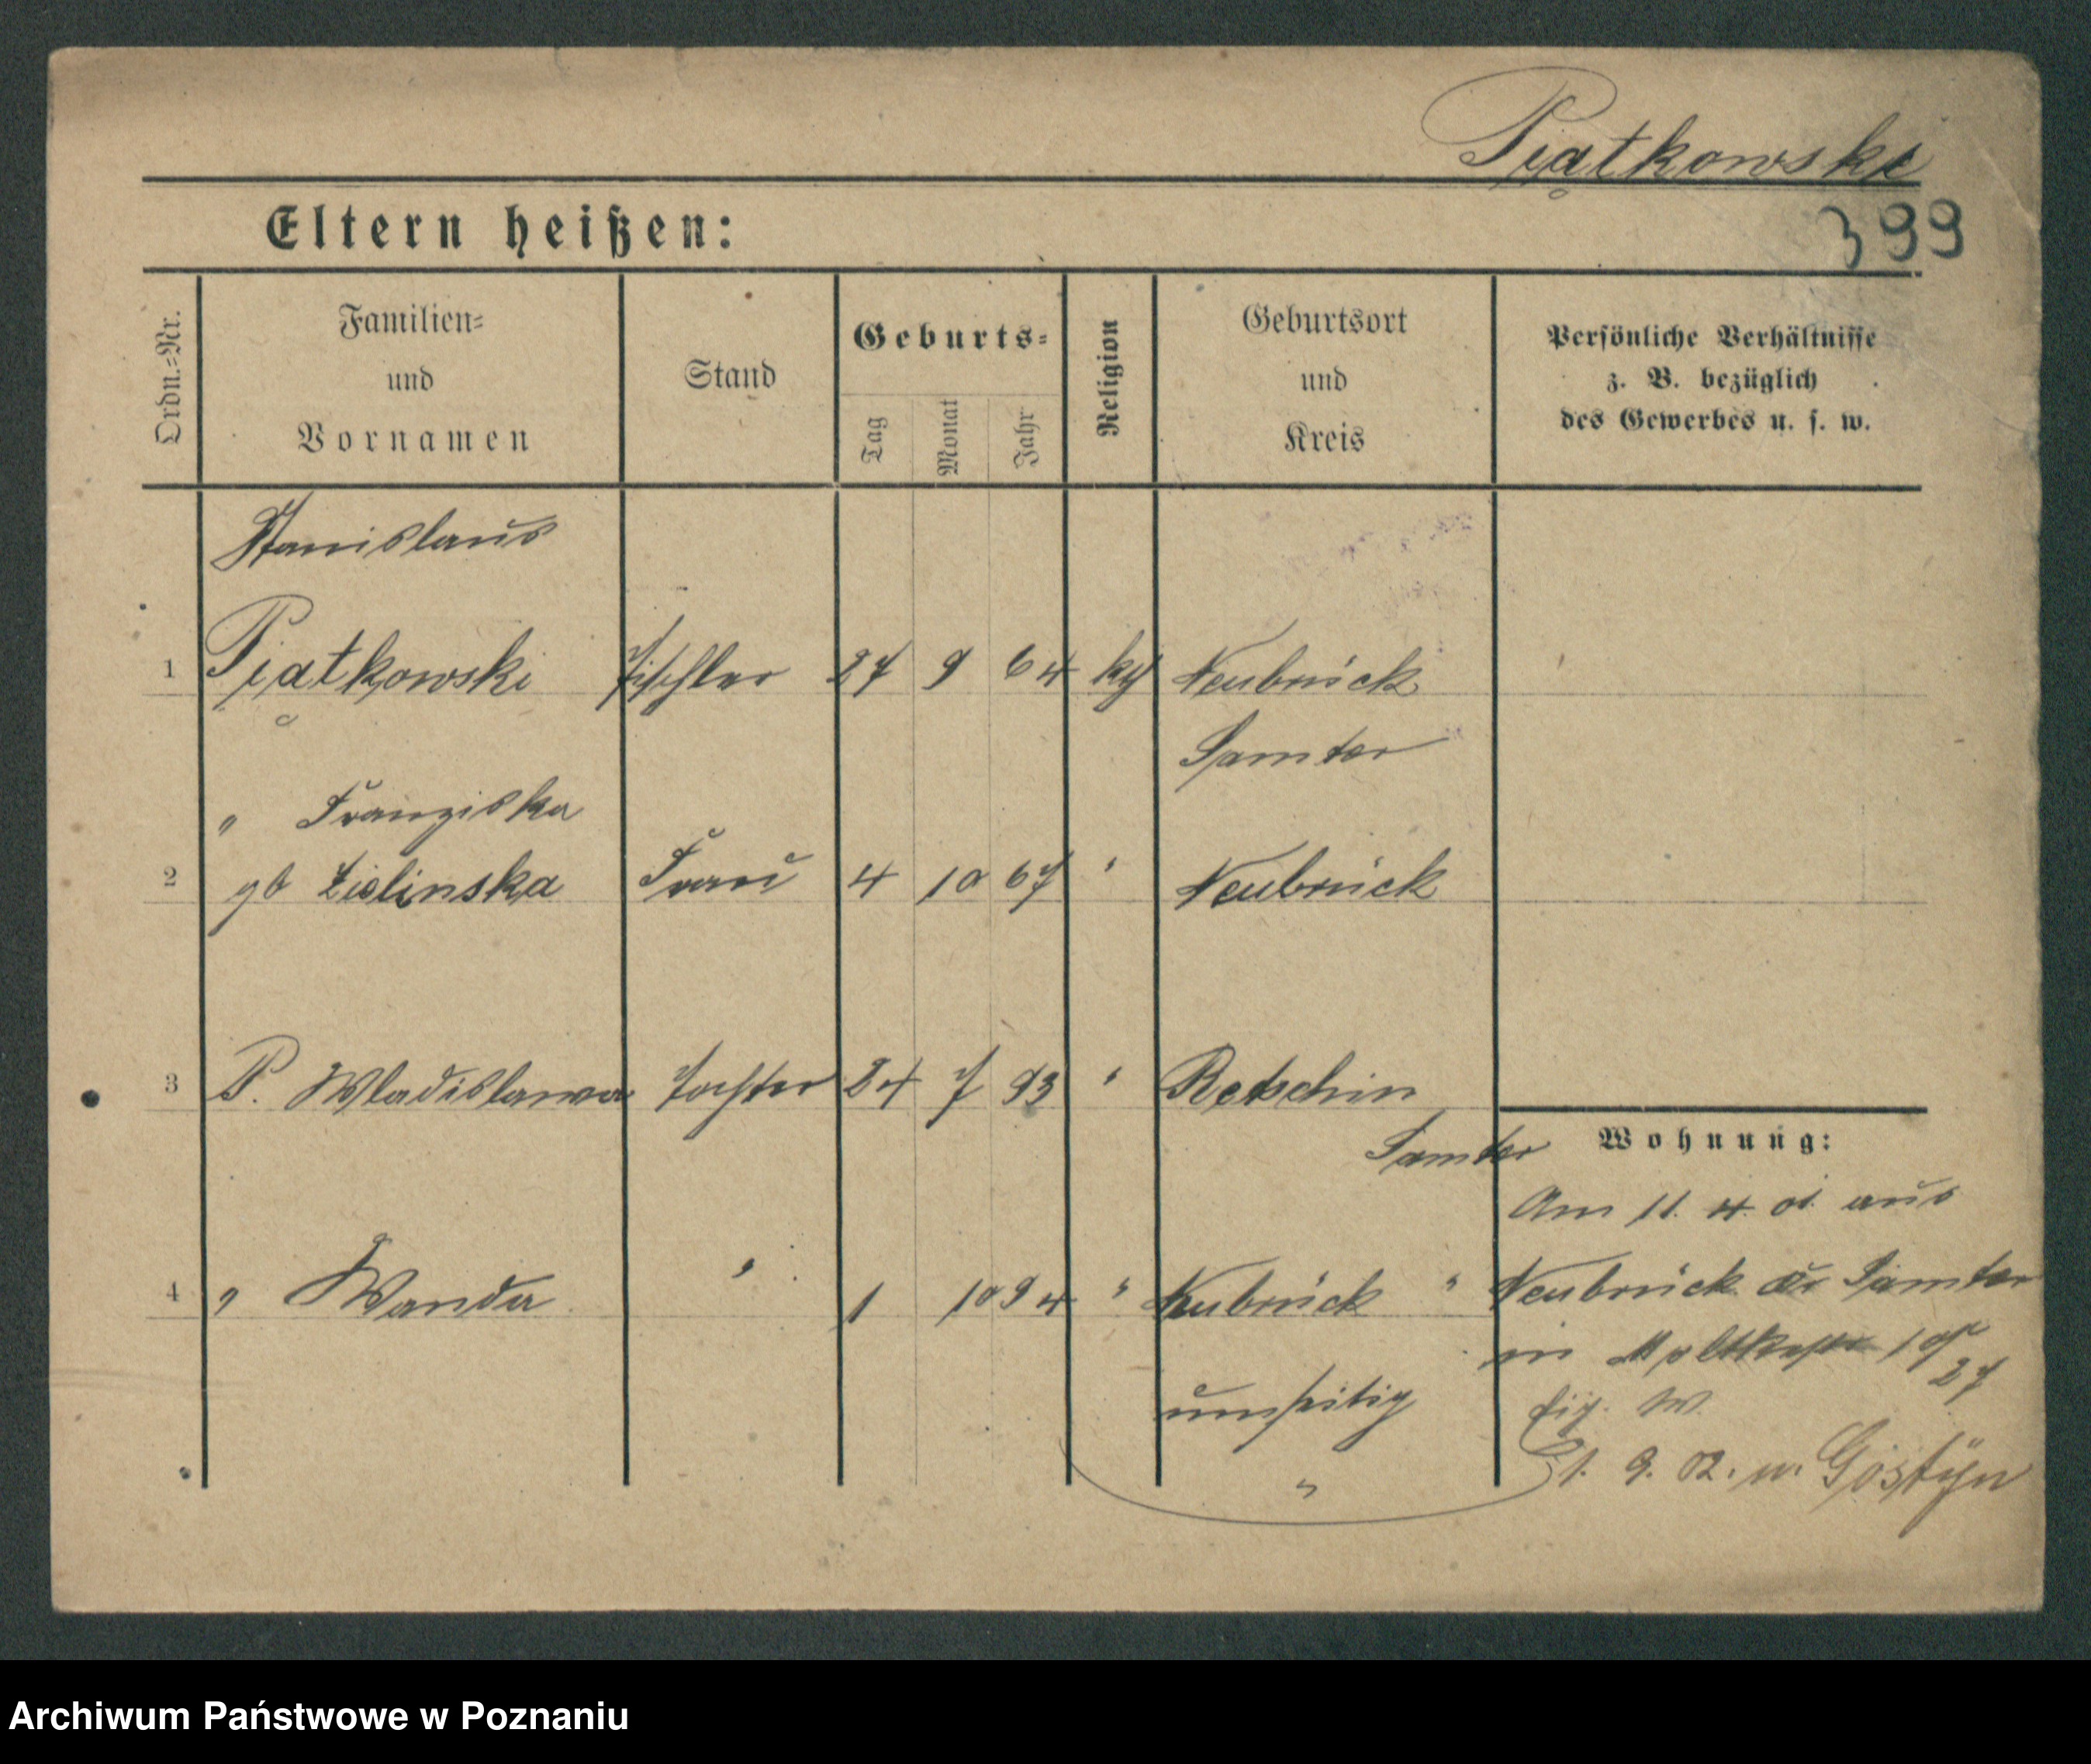 Piątkowski
399
Eltern heißen:
Ordn.=Nr.
Familien=
und
Vornamen
Stand
Geburts=
Tag
Monat
Jahr
Religion
Geburtsort
und
Kreis
Persönliche Verhältnisse
z. B. bezüglich
des Gewerbes u. s. w.
Stanislaus
1 Piątkowski Tischler 27 9 64 kath Neubrück
Samter
" Franziska
2 gb Zielinska Frau 4 10 67 " Neubrück
3 P. Wladislawa Tochter 24 7 93 " Retschin
Samter
4 " Wanda " 1 10 94 " Neubrück "
umseitig
"
Wohnung:
Am 11. 4. 01. aus
Neubrück Kr Samter
in Moltkestr 10/27
W.
1. 9. 02. n. Gostyn
Archiwum Państwowe w Poznaniu